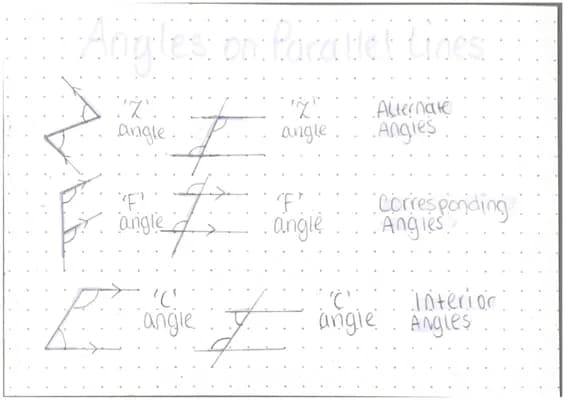 Angles on Parallel Lines
'Z' angle 'Z' angle Alternate Angles
'F' angle 'F' angle Corresponding Angles
'C' angle 'C' angle Interior Angles